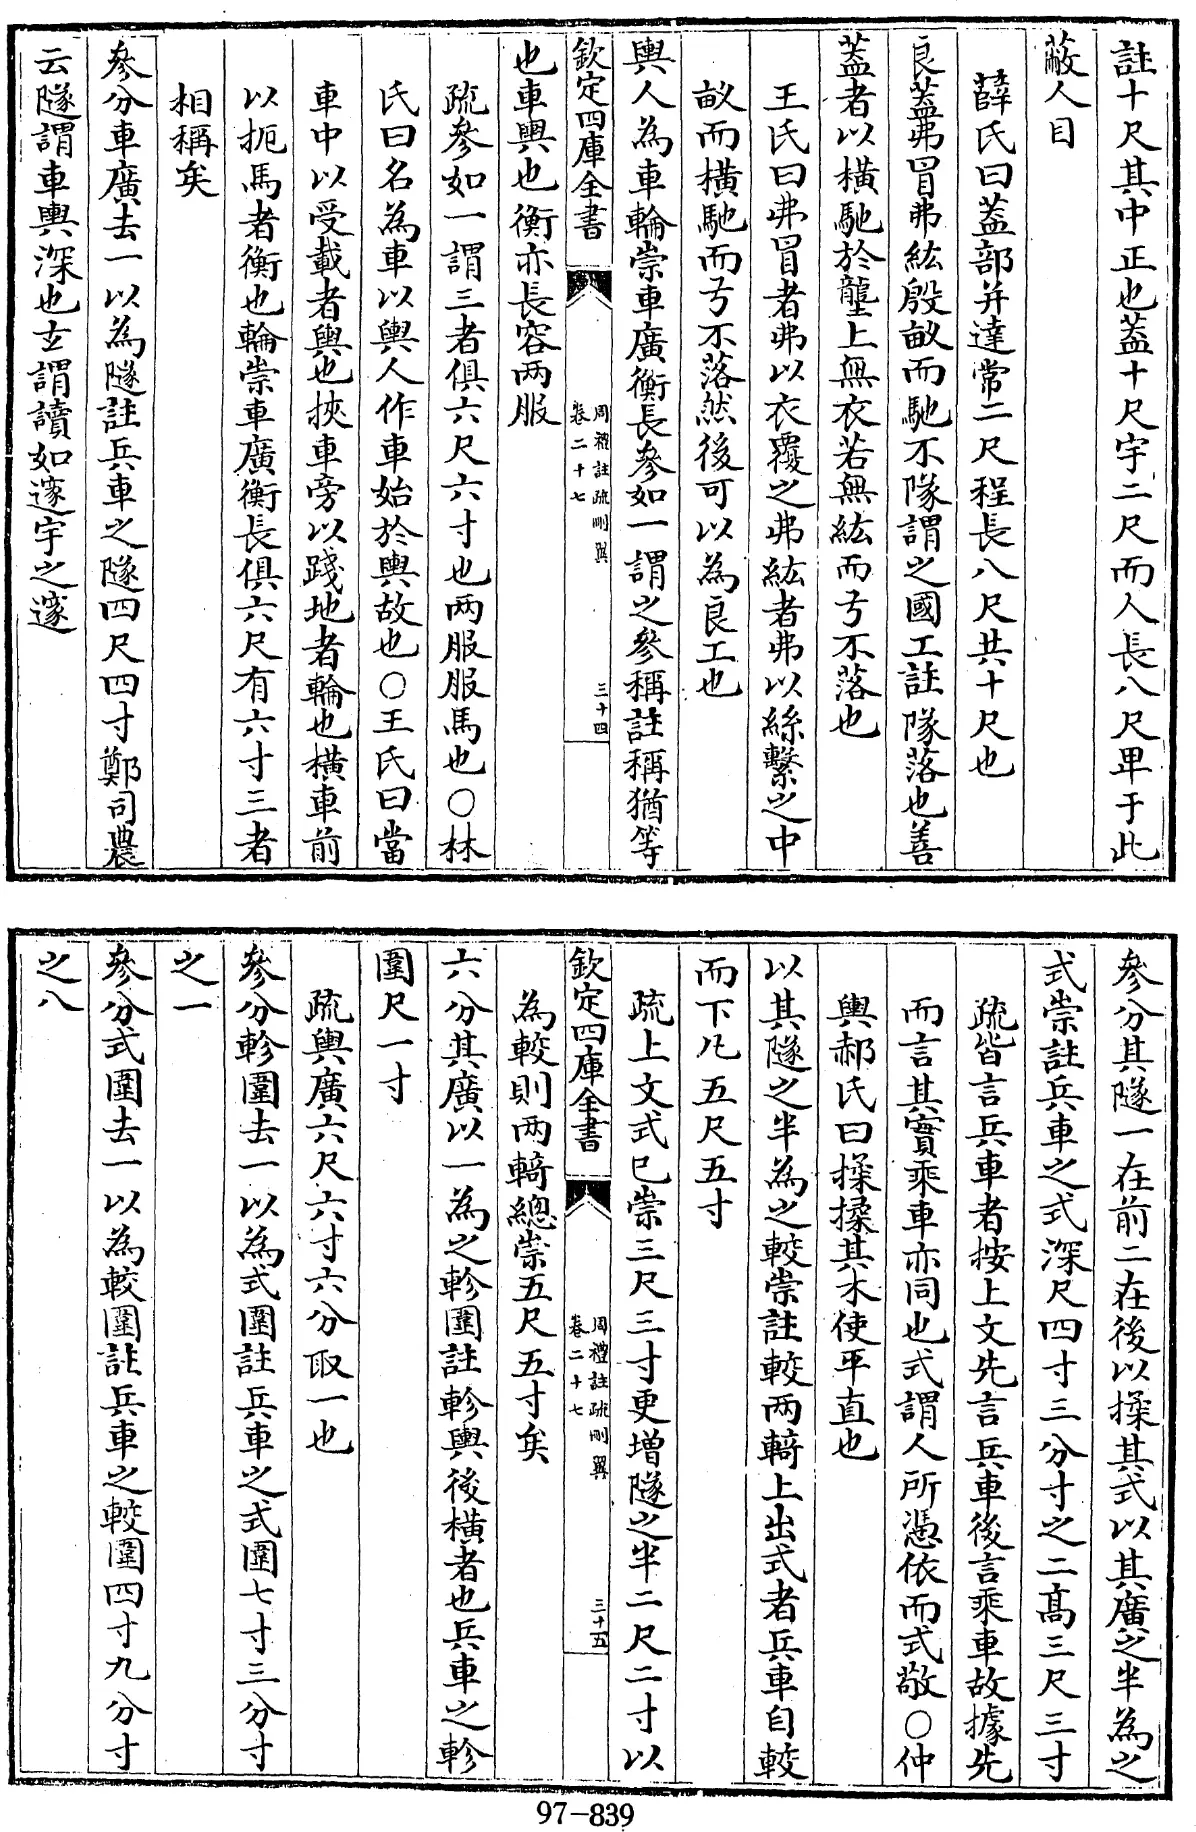 註十尺其中正也蓋十尺宇二尺而人長八尺卑于此
蔽人目
薛氏曰蓋部并達常二尺程長八尺共十尺也
良蓋弗冒弗紘殷畝而馳不隊謂之國工註隊落也善
蓋者以橫馳於壟上無衣若無紘而弓不落也
王氏曰弗冒者弗以衣覆之弗紘者弗以絲繫之中
畝而橫馳而弓不落然後可以為良工也
輿人為車輪崇車廣衡長參如一謂之參稱註稱猶等
欽定四庫全書
周禮註疏刪翼
卷二十七
三十四
也車輿也衡亦長容兩服
疏參如一謂三者俱六尺六寸也兩服服馬也○林
氏曰名為車以輿人作車始於輿故也○王氏曰當
車中以受載者輿也挾車旁以踐地者輪也橫車前
以扼馬者衡也輪崇車廣衡長俱六尺有六寸三者
相稱矣
參分車廣去一以為隧註兵車之隧四尺四寸鄭司農
云隧謂車輿深也玄謂讀如邃宇之邃
參分其隧一在前二在後以揉其式以其廣之半為之
式崇註兵車之式深尺四寸三分寸之二高三尺三寸
疏皆言兵車者按上文先言兵車後言乘車故據先
而言其實乘車亦同也式謂人所憑依而式敬○仲
輿郝氏曰揉揉其木使平直也
以其隧之半為之較崇註較兩輢上出式者兵車自較
而下凡五尺五寸
疏上文式已崇三尺三寸更增隧之半二尺二寸以
欽定四庫全書
周禮註疏刪翼
卷二十七
三十五
為較則兩輢總崇五尺五寸矣
六分其廣以一為之軫圍註軫輿後橫者也兵車之軫
圍尺一寸
疏輿廣六尺六寸六分取一也
參分軫圍去一以為式圍註兵車之式圍七寸三分寸
之一
參分式圍去一以為較圍註兵車之較圍四寸九分寸
之八
97-839